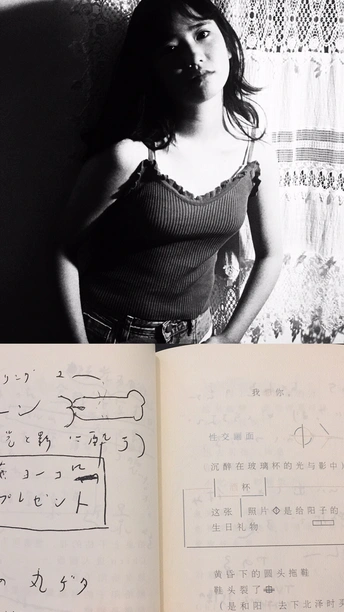 リング 2
ーン
光と影に酔う)
ヨーコに
プレゼント
の 丸ゲタ
我 你
性交画面
沉醉在玻璃杯的光与影中
杯
这张 照片 是给阳子的
生日礼物
黄昏下的圆头拖鞋
鞋头裂了
(是和阳 去下北泽时买